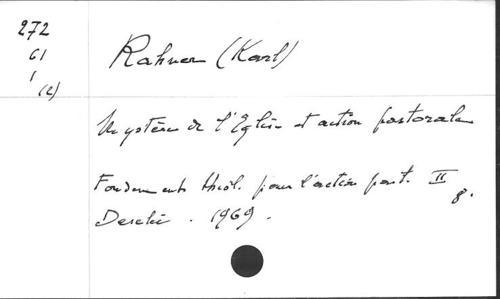 272
61
1
(2)
Rahner (Karl)
Mystère de l'Eglise et action pastorale
Fondements théol. pour l'action past. II
8.
Desclée. 1969.